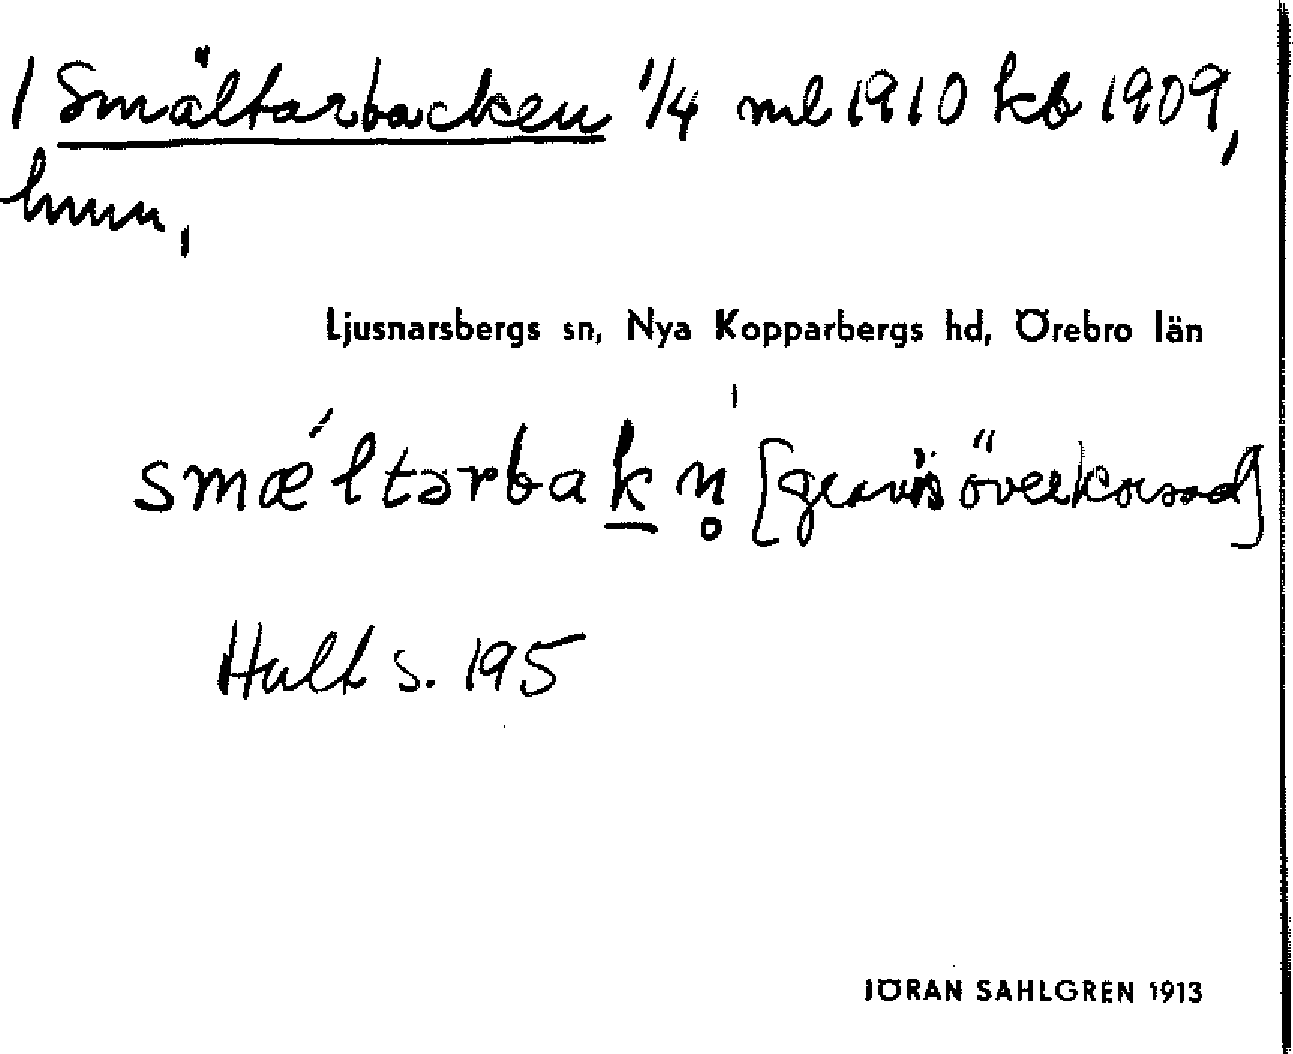 / Smältarbacken 1/4 ml 1910 kb 1909,
hmn,
Ljusnarsbergs sn, Nya Kopparbergs hd, Örebro län
smæ´ltərbakn̥ [gravis överkorsad]
Hult s. 195
JÖRAN SAHLGREN 1913